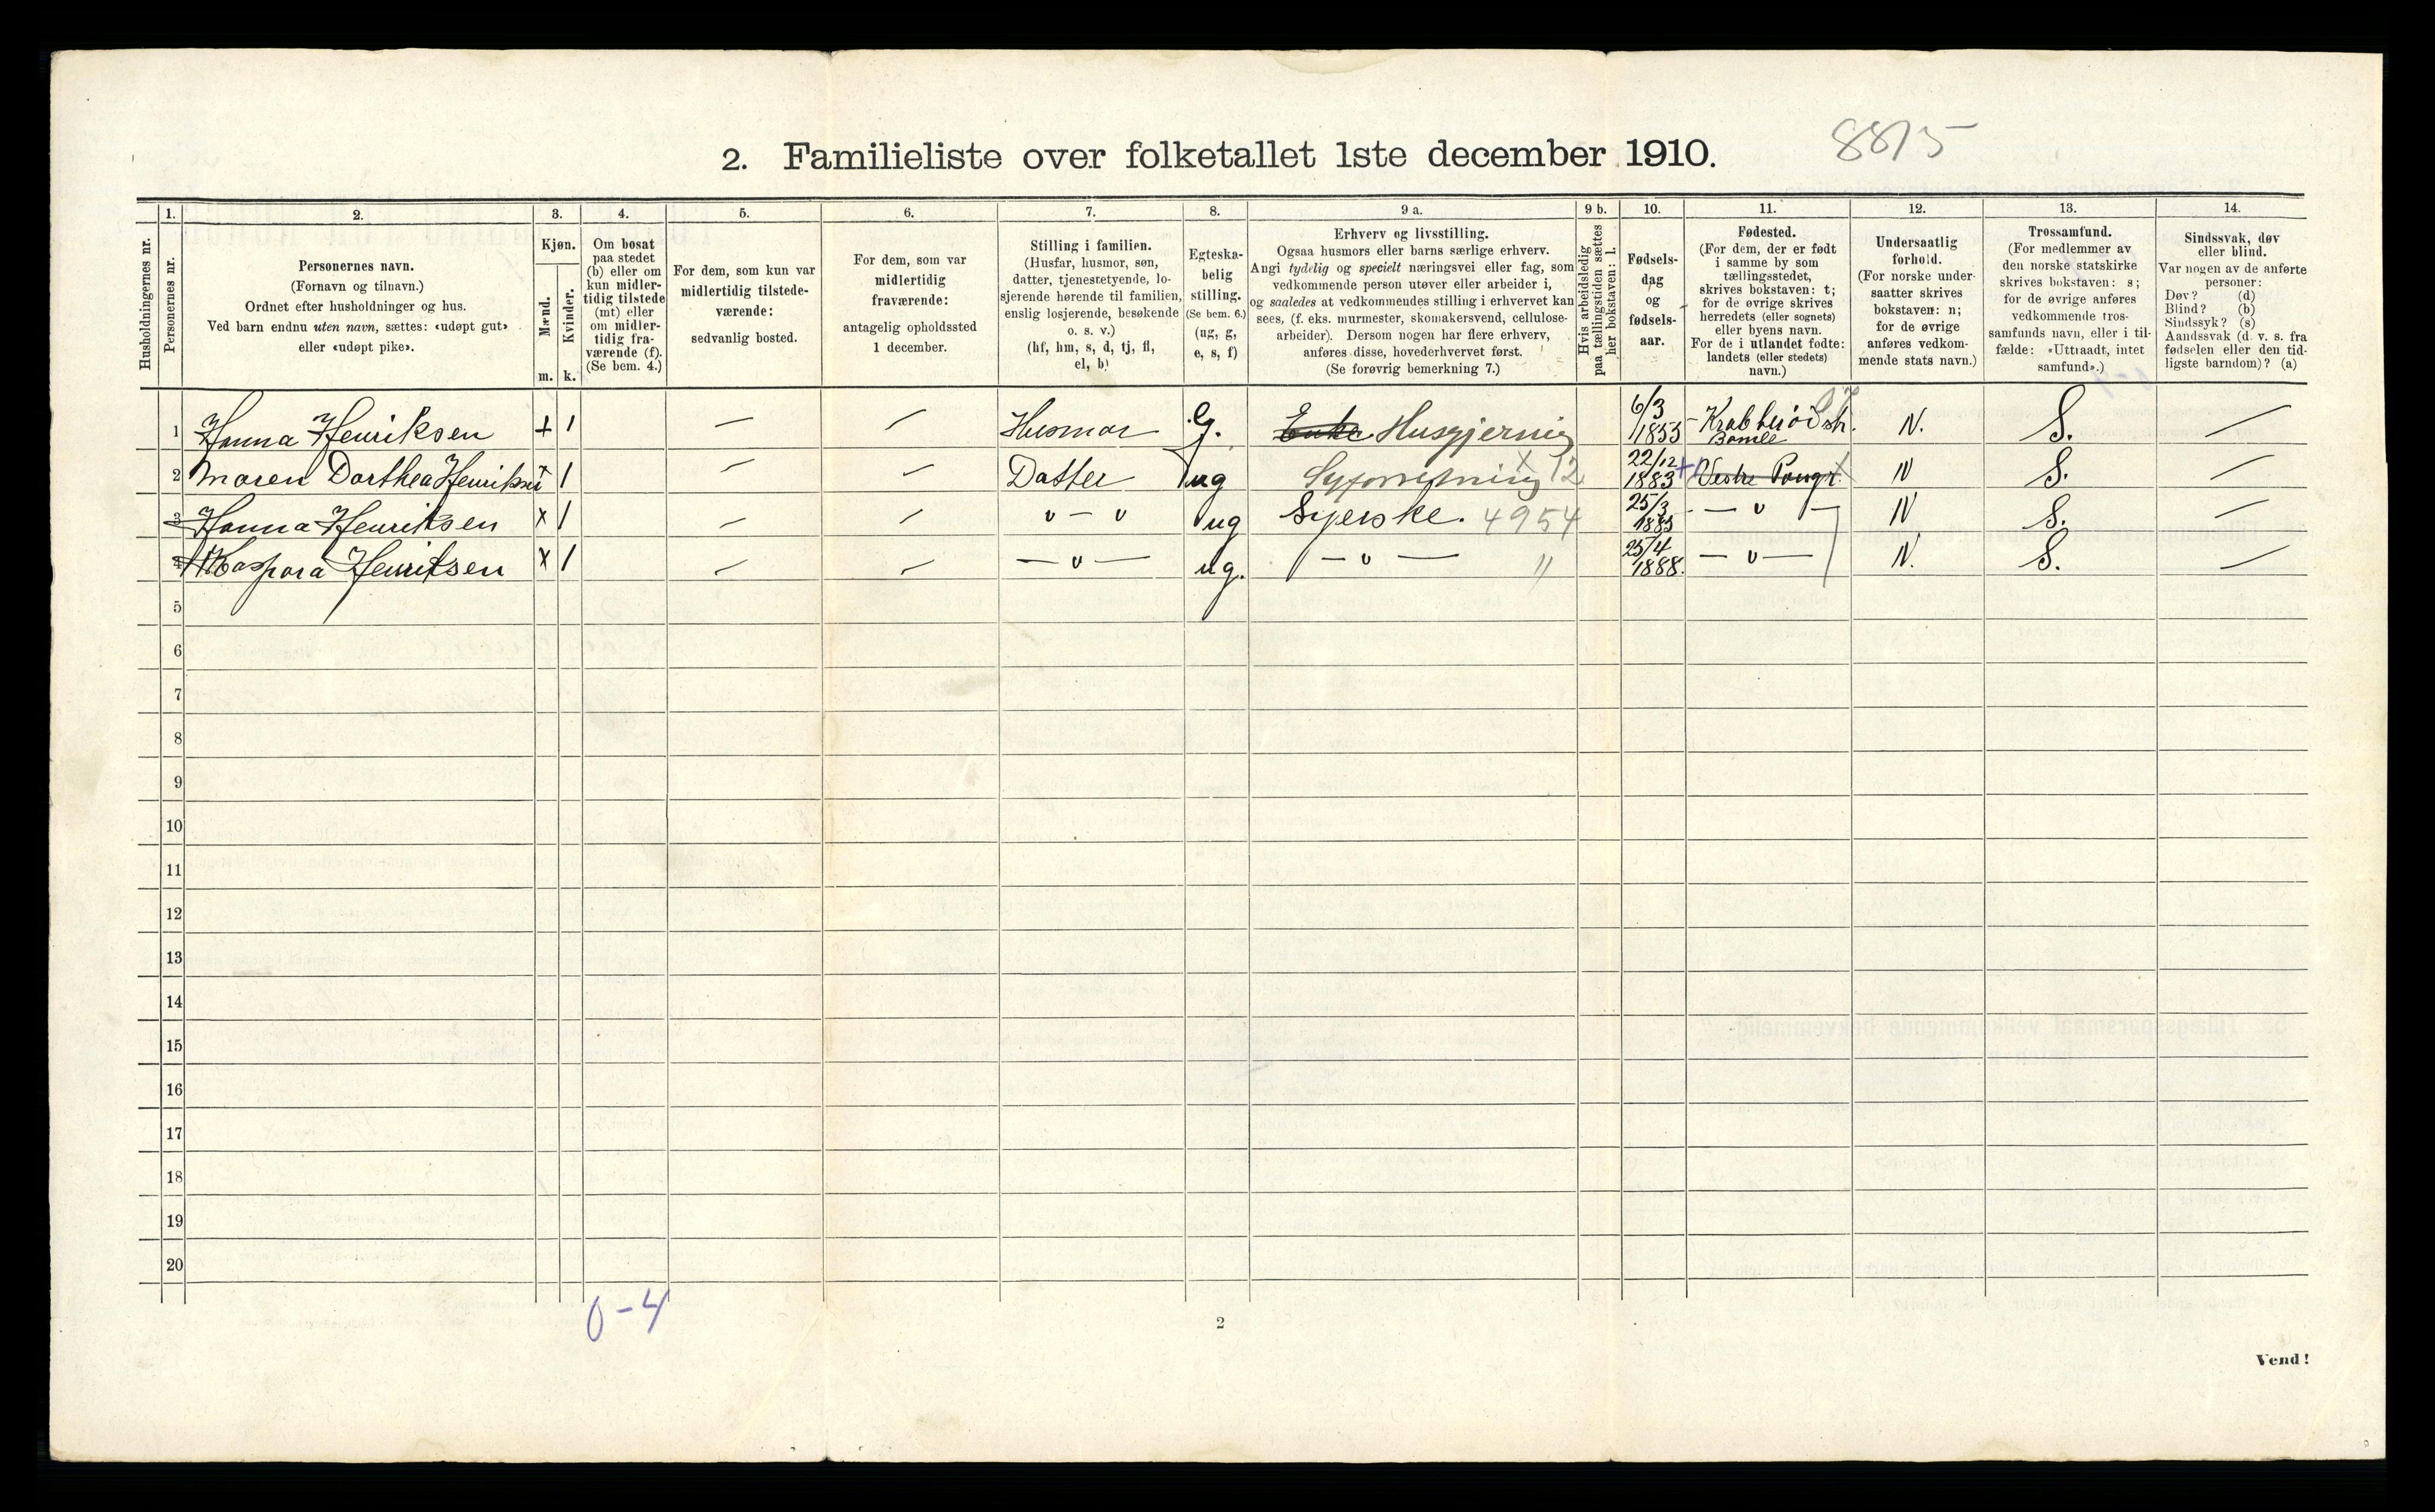 2. Familieliste over folketallet 1ste december 1910.
8815
Husholdningernes nr.
1.
Personernes nr.
2.
Personernes navn.
(Fornavn og tilnavn.)
Ordnet efter husholdninger og hus.
Ved barn endnu uten navn, sættes: «udøpt gut»
eller «udøpt pike».
3.
Kjøn.
Mænd.
Kvinder.
m. k.
4.
Om bosat
paa stedet
(b) eller om
kun midler-
tidig tilstede
(mt) eller
om midler-
tidig fra-
værende (f).
(Se bem. 4.)
5.
For dem, som kun var
midlertidig tilstede-
værende:
sedvanlig bosted.
6.
For dem, som var
midlertidig
fraværende:
antagelig opholdssted
1 december.
7.
Stilling i familien.
(Husfar, husmor, søn,
datter, tjenestetyende, lo-
sjerende hørende til familien,
enslig losjerende, besøkende
o. s. v.)
(hf, hm, s, d, tj, fl,
el, b)
8.
Egteska-
belig
stilling.
(Se bem. 6.)
(ug, g,
e, s, f)
9 a.
Erhverv og livsstilling.
Ogsaa husmors eller barns særlige erhverv.
Angi tydelig og specielt næringsvei eller fag, som
vedkommende person utøver eller arbeider i,
og saaledes at vedkommendes stilling i erhvervet kan
sees, (f. eks. murmester, skomakersvend, cellulose-
arbeider). Dersom nogen har flere erhverv,
anføres disse, hovederhvervet først.
(Se forøvrig bemerkning 7.)
9 b.
Hvis arbeidsledig
paa tællingstiden sættes
her bokstaven: l.
10.
Fødsels-
dag
og
fødsels-
aar.
11.
Fødested.
(For dem, der er født
i samme by som
tællingsstedet,
skrives bokstaven: t;
for de øvrige skrives
herredets (eller sognets)
eller byens navn.
For de i utlandet fødte:
landets (eller stedets)
navn.)
12.
Undersaatlig
forhold.
(For norske under-
saatter skrives
bokstaven: n;
for de øvrige
anføres vedkom-
mende stats navn.)
13.
Trossamfund.
(For medlemmer av
den norske statskirke
skrives bokstaven: s;
for de øvrige anføres
vedkommende tros-
samfunds navn, eller i til-
fælde: «Uttraadt, intet
samfund».)
14.
Sindssvak, døv
eller blind.
Var nogen av de anførte
personer:
Døv? (d)
Blind? (b)
Sindssyk? (s)
Aandssvak (d. v. s. fra
fødselen eller den tid-
ligste barndom)? (a)
1 Hanna Henriksen + 1 — — Husmor g. Enke Husgjerning 6/3 1853 Bamle N. S. —
2 Maren Dorthea Henriksen x 1 — — Datter ug Syforretning x 12 22/12 1883 + Vestre N S. —
3 Hanna Henriksen x 1 — — " — " ug Syerske. 4954 25/3 1885 — " — N S. —
4 Kaspara Henriksen x 1 — — — " — ug. — " — " 25/4 1888. — " — N. S. —
5
6
7
8
9
10
11
12
13
14
15
16
17
18
19
20
0-4
2
Vend!